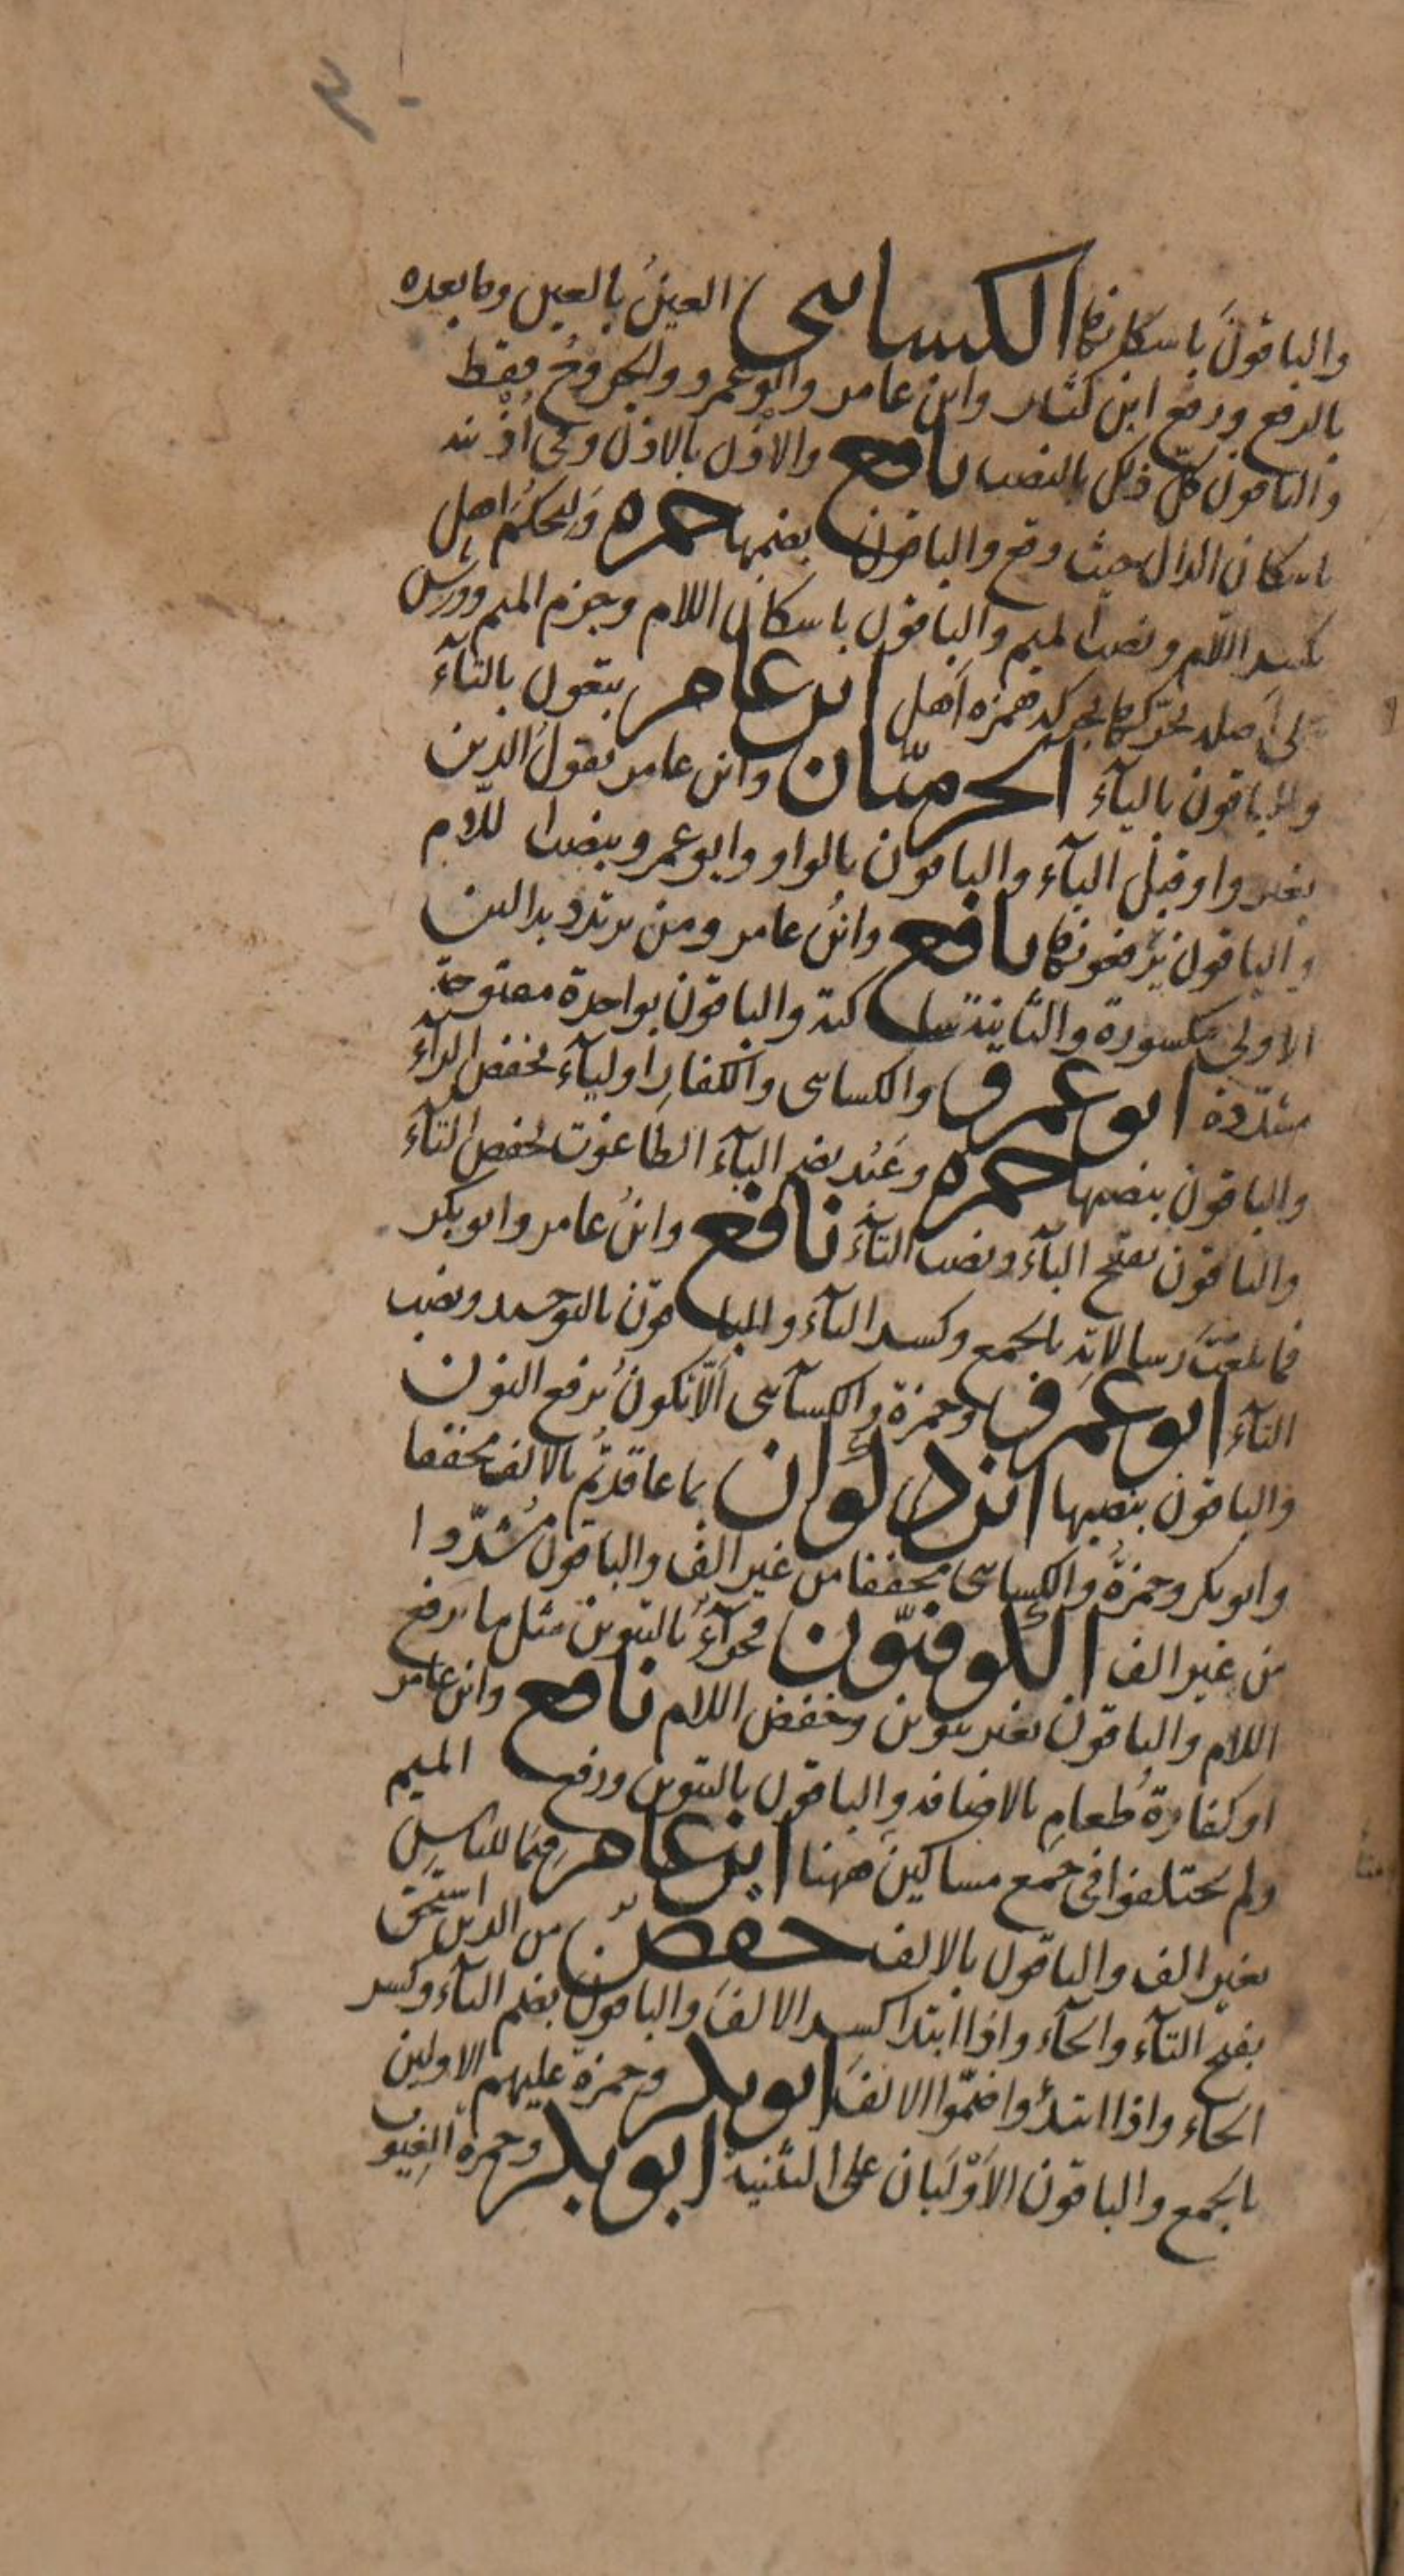 والباقونَ باسكانها الكسائى العينُ بالعين وما بعده
بالرفع ورفع ابن كثير وابن عامر وابو عمرو والجروحُ فقط
والباقون كلّ ذلك بالنصب نافع والاذْن بالاذن وفى اذْنيه
باسكان الذال حيث وقع والباقون بضمها حمزه وَلِيحكمَ اهل
بكسر اللام ونصب الميم والباقون باسكان اللام وجزم الميم وورش
على اَصله يحرّكها بحركة همزه اَهل ابن عامر تبغون بالتآء
والباقون باليآء الحرميّان وابن عامر يقول الذين
بغير واو قبل اليآء والباقون بالواو وابو عمرو بنصب اللام
والباقون يَرْفعونها نافع وابنُ عامر ومن يرتدد بدالين
الاولى مكسورة والثانية ساكنة والباقون بواحدة مفتوحة
مشدّدة ابو عمرو والكسائى والكفارِ اوليآء بخفض الرآء
والباقون بنصبها حمزه وعَبُد بضم البآء الطاغوت بخفض التآء
والباقون بفتح البآء ونصب التآء نافع وابنُ عامر وابو بكر
فما بلغتَ رسالاتِه بالجمع وكسر التآء والباقون بالتوحيد ونصب
التآء ابو عمرو وحمزة والكسآئى اَلّا تكونُ برفع النون
والباقون بنصبها ابن ذكوان بما عاقدتُم بالالف مخففا
وابو بكر وحمزةُ والكسائى مخففا من غير الف والباقون مُشدّدا
من غير الف الكوفيّون فجزآءٌ بالتنوين مثل ما برفع
اللام والباقون بغير تنوين وخفض اللام نافع وابن عامر
او كفارةُ طعامِ بالاضافه والباقون بالتنوين ورفع الميم
ولم يختلفوا فى جَمع مساكينَ ههنا ابن عامر قِيَمًا للناس
بغير الف والباقون بالالف حفصٌ من الذين استحق
بفتح التآء والحآء واذا ابتدا كسر الالفَ والباقون بضم التآء وكسر
الحاء واذا ابتدؤا ضمّوا الالفَ ابو بكر وحمزة عليهم الاولين
بالجمع والباقون الاَوْلَيان على التثنية ابو بكر وحمزة الغِيوب